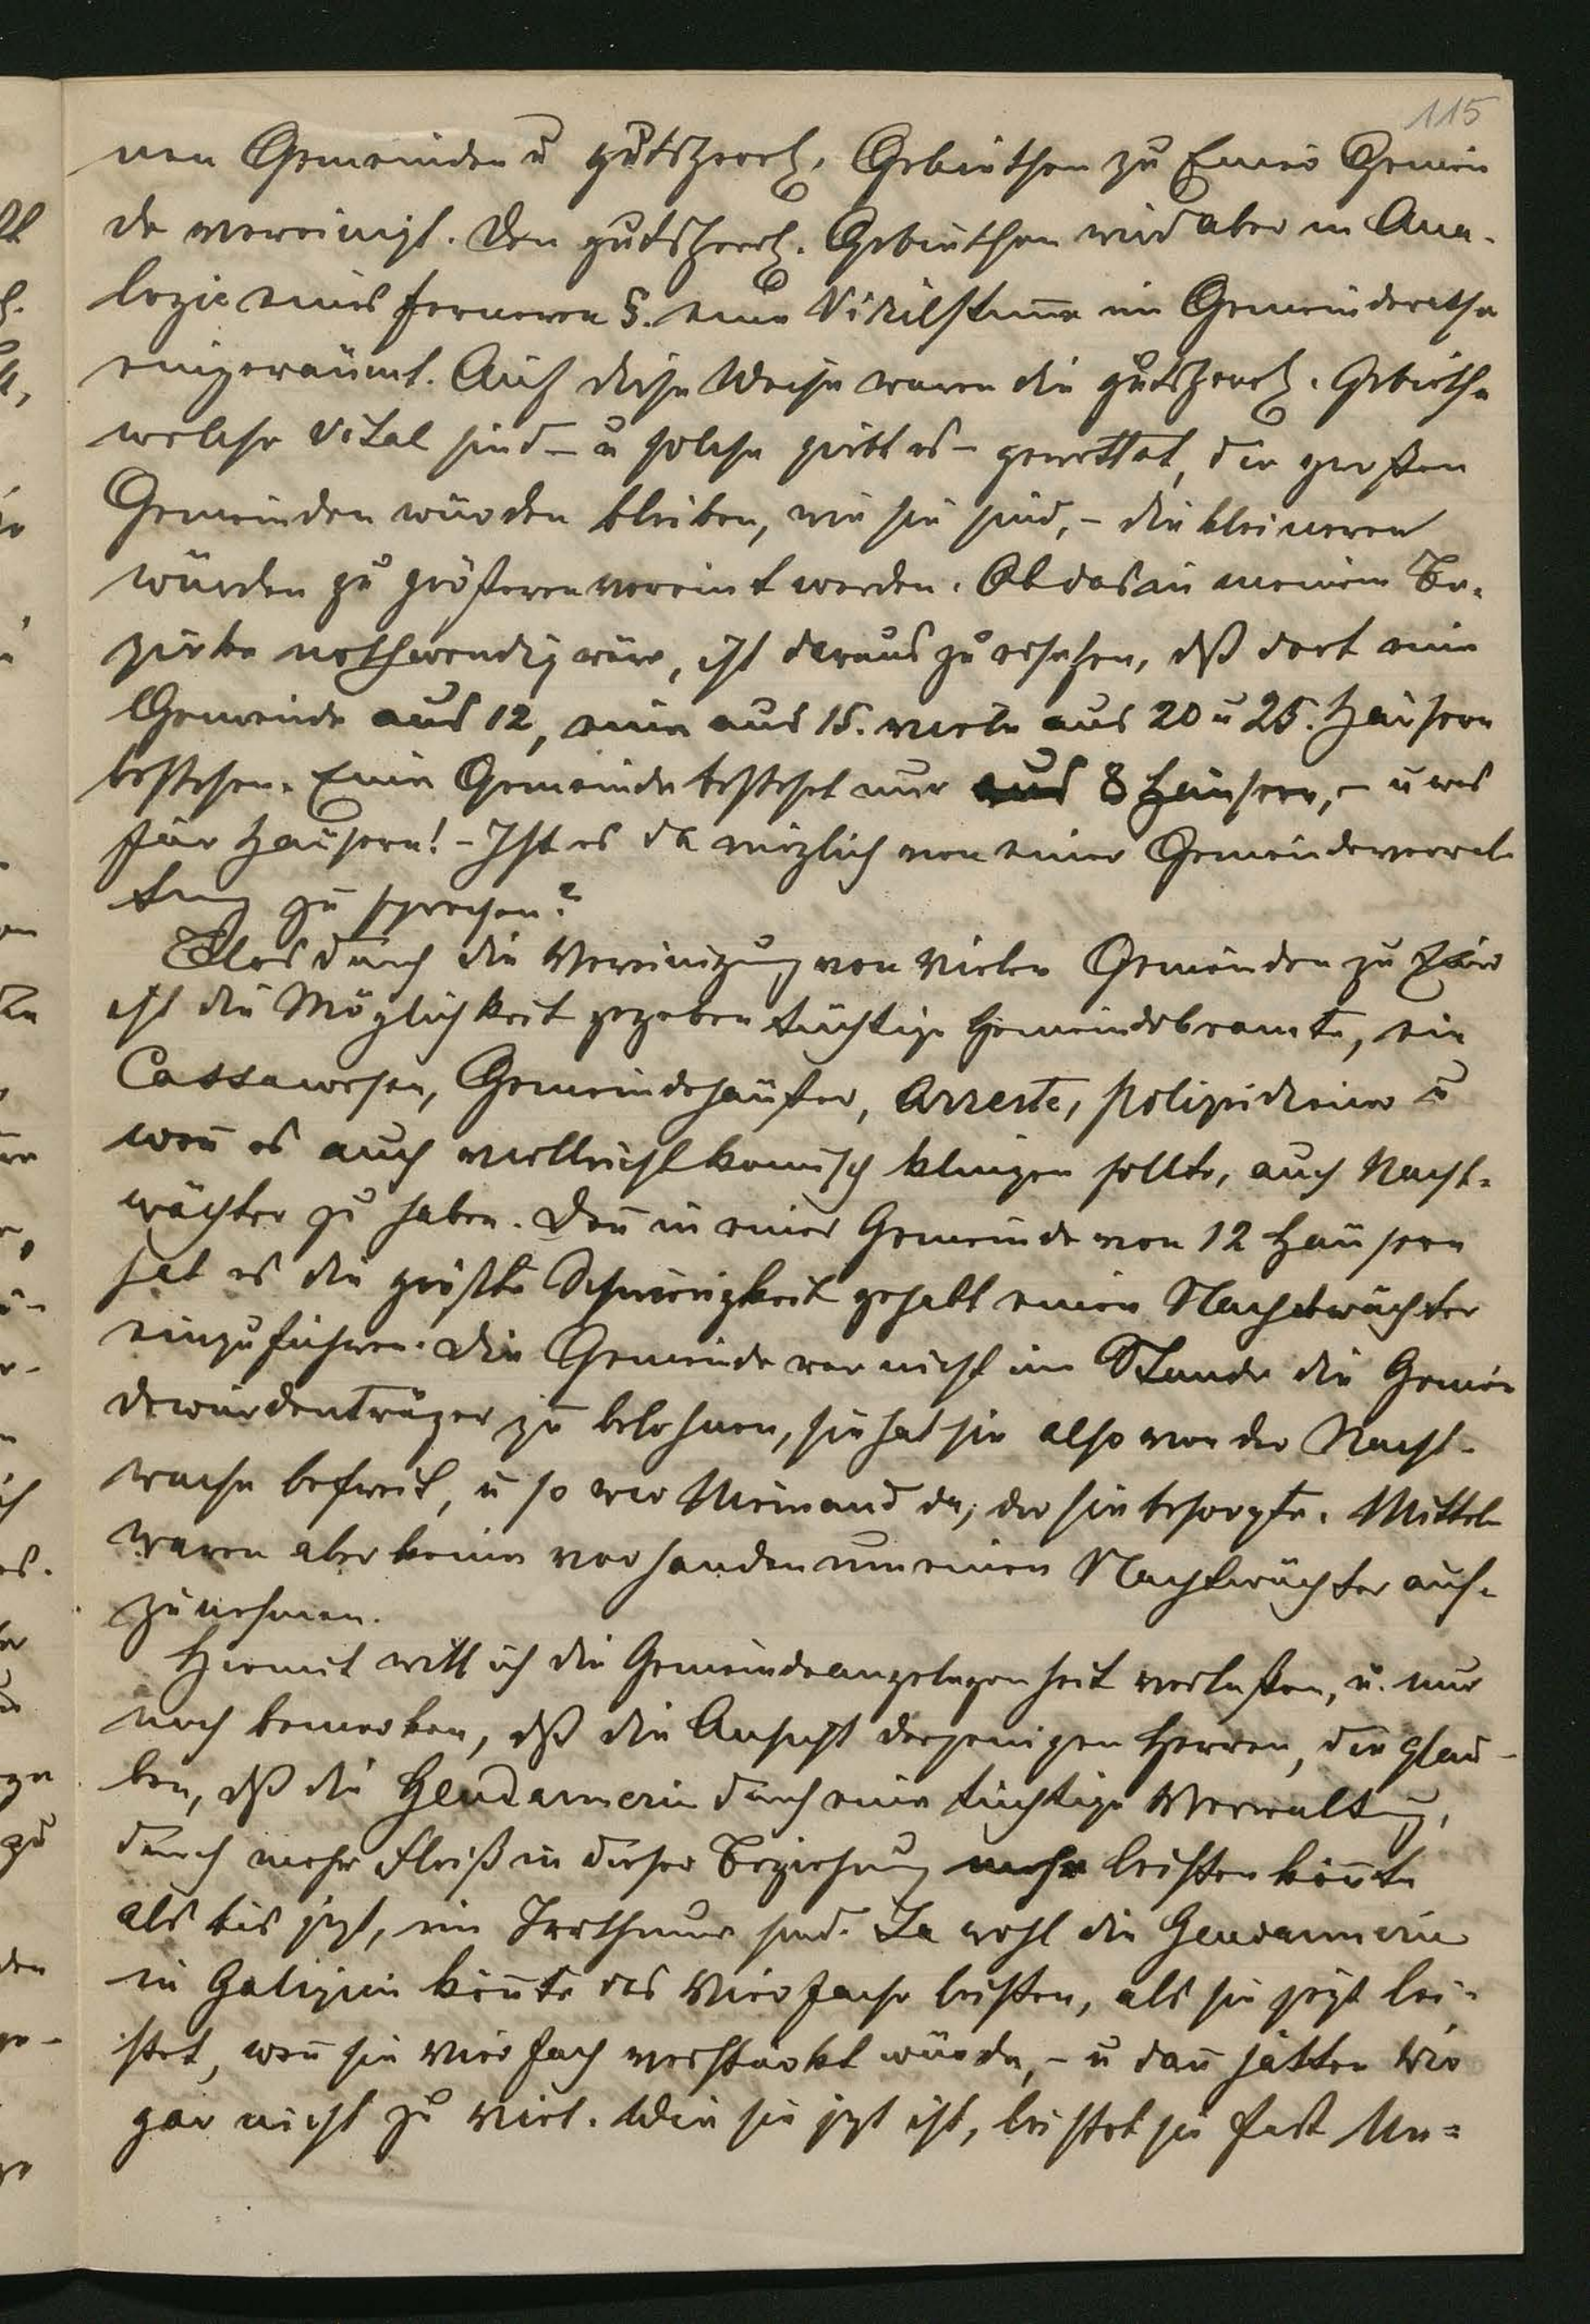 115
nen Gemeinden u gutsherrl. Gebiethen zu Einer Gemein
de vereinigt. Den gutsherrl. Gebiethen wird aber in Ana-
logie eines ferneren §. eine Virilstimme im Gemeinderathe
eingeräumt. Auf diese Weise waren die gutsherrl. Gebiethe
welche vital sind – u solche giebt es – gerettet, die großen
Gemeinden würden bleiben, wie sie sind, – die kleineren
würden zu größeren vereint werden. Ob das in meinem Be-
zirke nothwendig wäre, ist daraus zu ersehen, dß dort eine
Gemeinde aus 12, eine aus 15. viele aus 20 u 25. Häusern
bestehen. Eine Gemeinde besteht nur aus 8 Häusern, – u was
für Häusern! – Ist es da möglich von einer Gemeindeverwal
tung zu sprechen?
Blos durch die Vereinigung von vielen Gemeinden zu Einer
ist die Möglichkeit gegeben tüchtige Gemeindebeamte, ein
Cassawesen, Gemeindehäuser, Arreste, Polizeidiener u
wenn̄ es auch vielleicht komisch klingen sollte, auch Nacht-
wächter zu haben. Den̄ in einer Gemeinde von 12 Häusern
hat es die größte Schwierigkeit gehabt einen Nachtwächter
einzuführen. Die Gemeinde war nicht im Stande die Gemein
dewürdenträger zu belohnen, sie hat sie also von der Nacht-
wache befreit, u so war Niemand da, der sie besorgte. Mittel
waren aber keine vorhanden um einen Nachtwächter auf-
zunehmen.
Hiemit will ich die Gemeindeangelegenheit verlaßen, u. nur
noch bemerken, dß die Ansicht derjenigen Herren, die glau-
ben, dß die Gendarmerie durch eine tüchtige Verwaltung,
durch mehr Fleiß in dieser Beziehung mehr leisten kön̄te
als bis jezt, im Irrthume sind. Ja wohl die Gendarmerie
in Galizien kön̄te das Vierfache leisten, als sie jezt lei-
stet, wen̄ sie vierfach verstärkt würde, – u dan̄ hätten wir
gar nicht zu viel. Wie sie jezt ist, leistet sie fast Un=